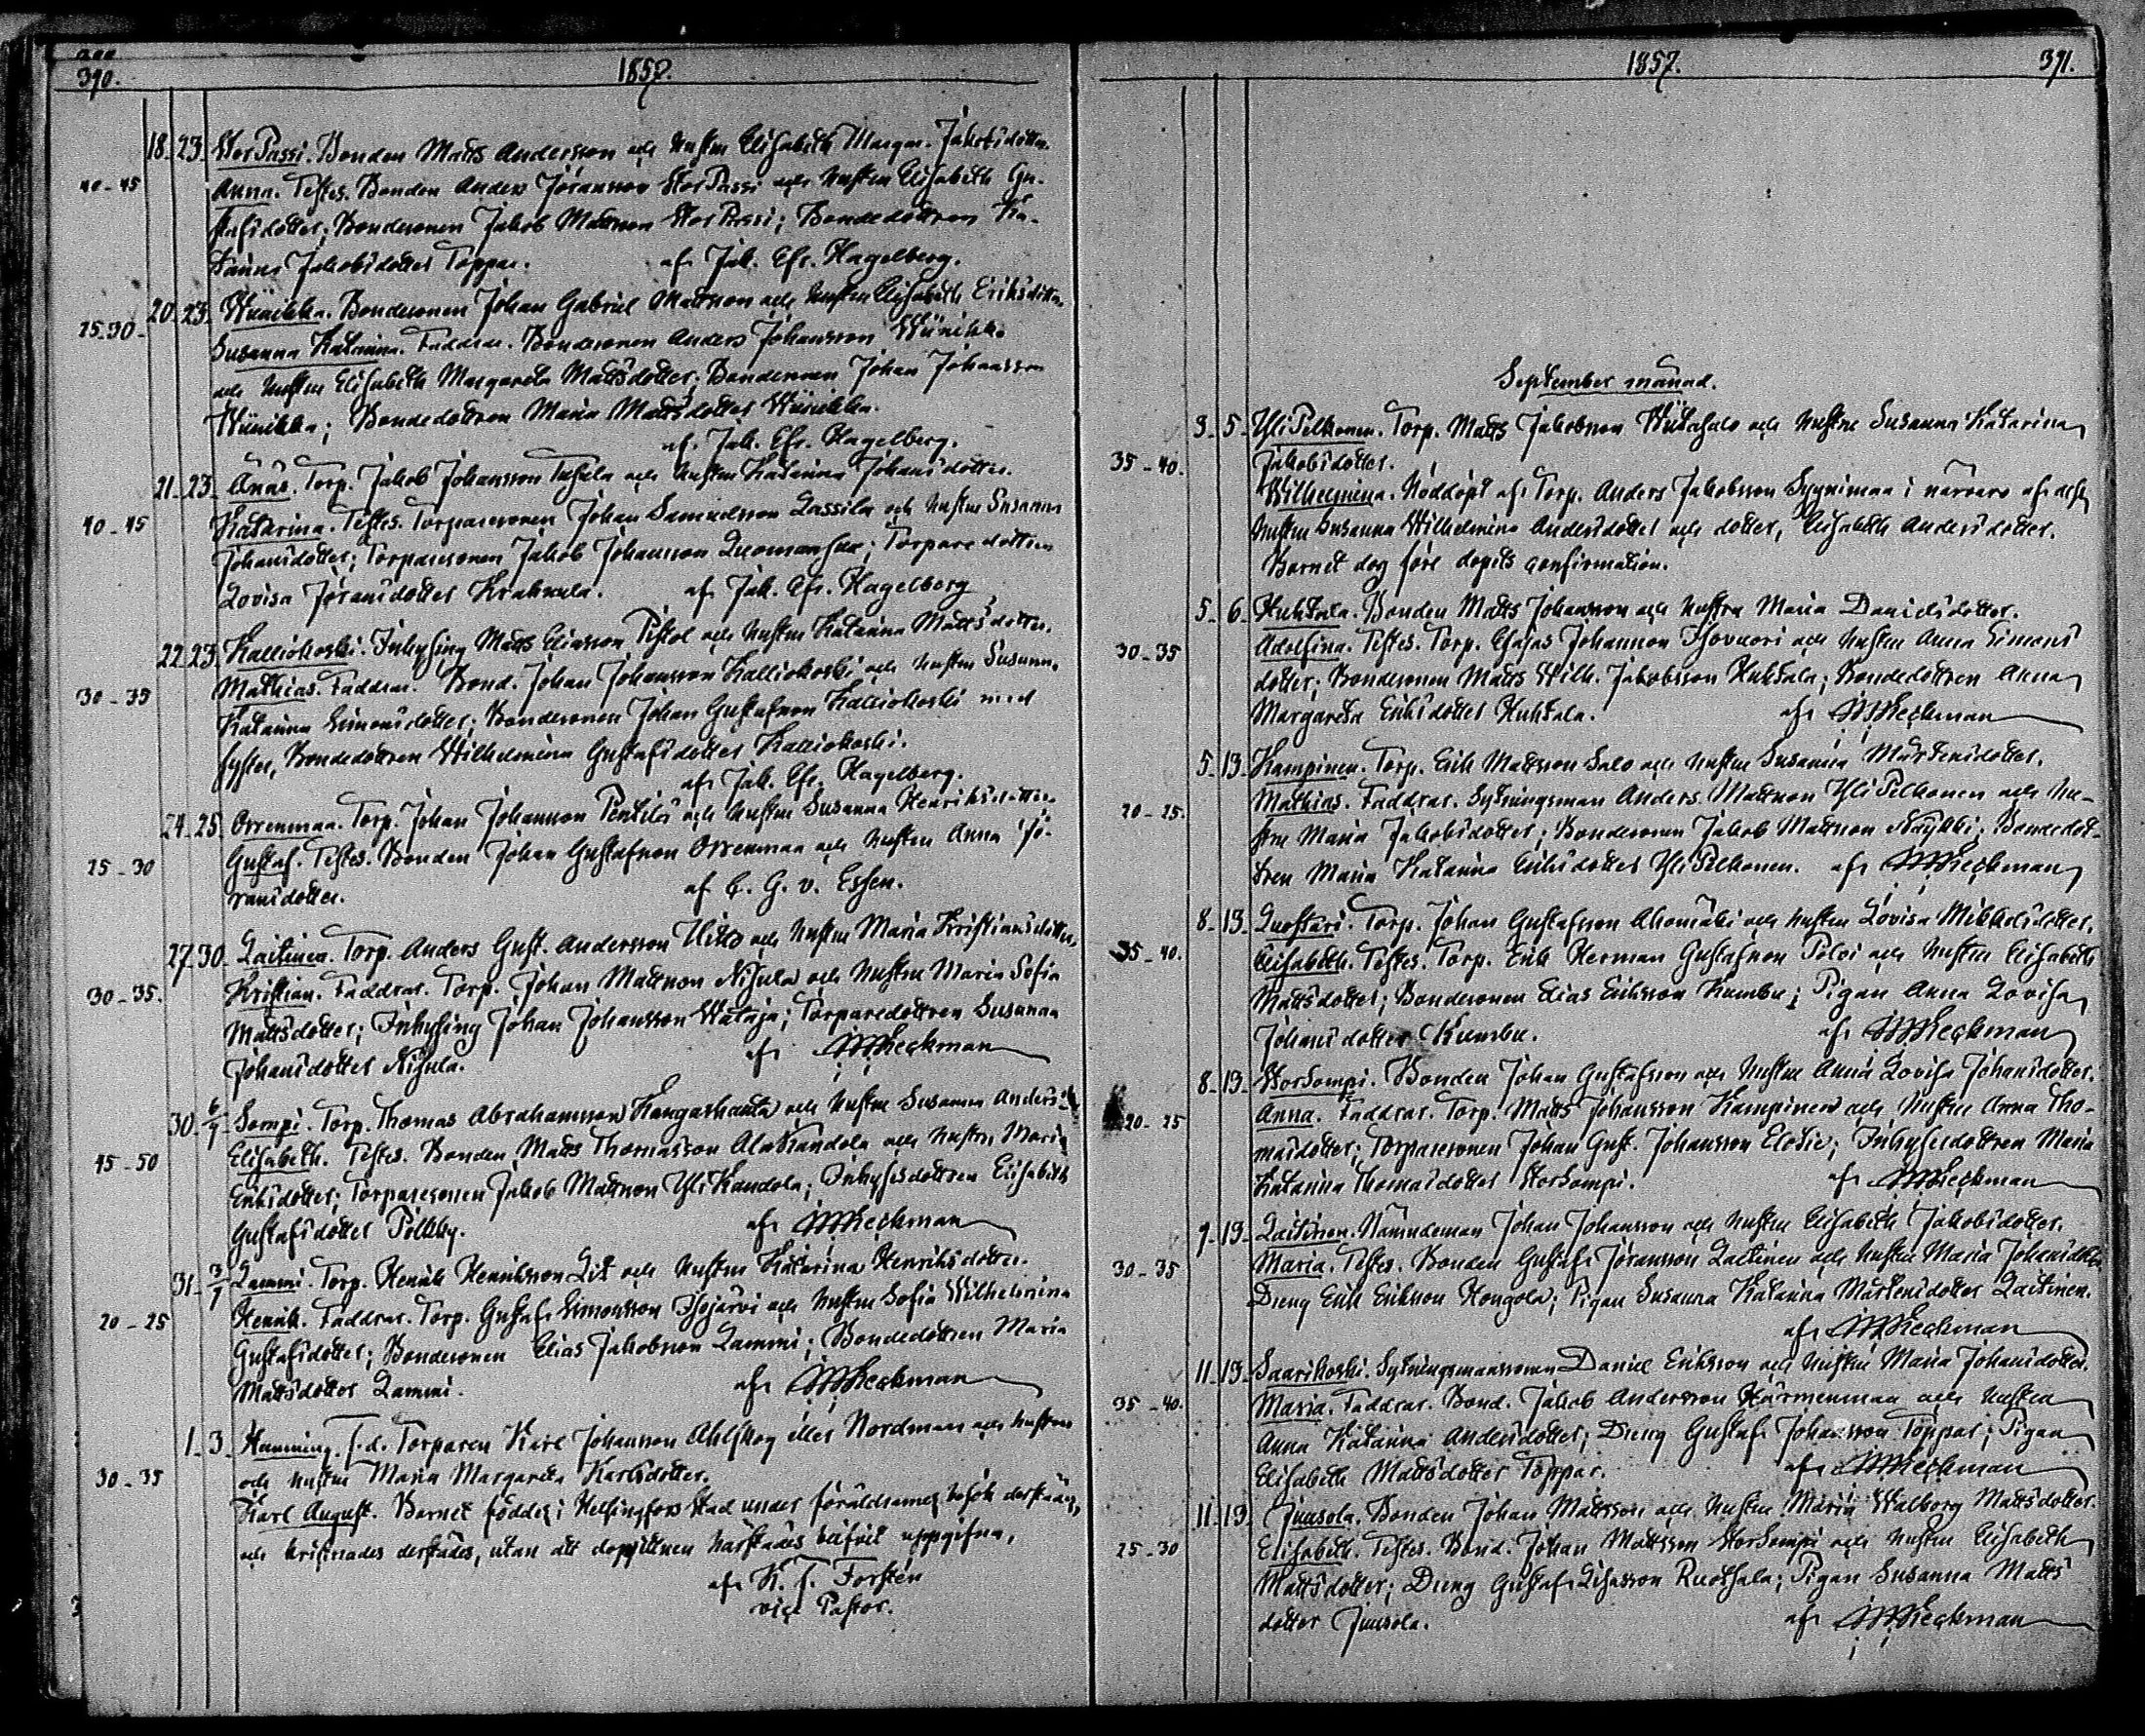 390.
1857.
18-23. StorPassi. Bonden Matts Andersson och hustru Elisabeth Margar. Jakobsdotter.
40-45 Anna. Testes. Bonden Anders Jöransson StorPassi och hustru Elisabeth Gu-
stafsdotter; Bondesonen Jakob Mattsson StorPassi; Bondedottren Ka-
tarina Jakobsdotter Toppar. af Jak. Efr. Hagelberg.
20-23. Wiinikka. Bondesonen Johan Gabriel Mattsson och hustru Elisabeth Eriksdotter.
25-30- Susanna Katarina. Faddrar. Bondesonen Anders Johansson Wiinikka
och hustru Elisabeth Margareta Mattsdotter; Bondesonen Johan Johansson
Wiinikka; Bondedottren Maria Mattsdotter Wiinikka.
af. Jak. Efr. Hagelberg.
21-23. Änäs. Torp. Jakob Johansson och hustru Katarina Johansdotter.
40-45 Katarina. Testes. Torparesonen Johan Samuelsson Lassila och hustru Susanna
Johansdotter; Torparesonen Jakob Johansson Luomansuu; Torparedottren
Lovisa Jöransdotter Krakkula. af Jak. Efr. Hagelberg
22-23. Kalliokoski. Inhysing Matts Eliasson Pistol och hustru Katarina Mattsdotter.
30-35 Mathias. Faddrar. Bond. Johan Johansson Kalliokoski och hustru Susanna
Katarina Simonsdotter; Bondesonen Johan Gustafsson Kalliokoski med
syster, Bondedottren Wilhelmina Gustafsdotter Kalliokoski.
af Jak. Efr. Hagelberg.
24-25. Orrenmaa. Torp. Johan Johansson Pentilä och hustru Susanna Henriksdotter.
25-30 Gustaf. Testes. Bonden Johan Gustafsson Orrenmaa och hustru Anna Jö-
ransdotter. af C. G. v. Essen.
27-30. Laitinen. Torp. Anders Gust. Andersson Hitto och hustru Maria Kristiansdotter.
30-35. Kristian. Faddrar. Torp. Johan Mattsson Nisula och hustru Maria Sofia
Mattsdotter; Inhysing Johan Johansson Wataja; Torparedottren Susanna
Johansdotter Nisula. af Heckman
30-6/9 Sompi. Torp. Thomas Abrahamsson Kangaskanta och hustru Susanna Andersd.
45-50 Elisabeth. Testes. Bonden Matts Thomasson AlaKandola och hustru Maria
Eriksdotter; Torparesonen Jakob Mattsson YliKandola; Inhysesdottren Elisabeth
Gustafsdotter Pölkky. af Heckman
31-3/9 Lammi. Torp. Henrik Henriksson Lit och hustru Katarina Henriksdotter.
20-25 Henrik. Faddrar. Torp. Gustaf Simonsson Isojärvi och hustru Sofia Wilhelmina
Gustafsdotter; Bondesonen Elias Jakobsson Lammi; Bondedottren Maria
Mattsdotter Lammi. af Heckman
1-3- Hemming. f.d. Torparen Karl Johansson Ahlskog eller Nordman och hustru
30-35 och hustru Maria Margareta Karlsdotter.
Karl August. Barnet föddes i Helsingfors stad under föräldrarnes besök derstädes,
och kristnades derstädes, utan att dopvittnen härstädes blifvit uppgifna,
af K. J. Forstén
vice Pastor.
1857.
391.
September månad.
3-5- YliPelkonen. Torp. Matts Jakobsson Wiitasalo och hustru Susanna Katarina
35-40. Jakobsdotter.
Wilhelmina. Nöddöpt af Torp. Anders Jakobsson Syynimaa i närvaro af dess
hustru Susanna Wilhelmina Andersdotter och dotter, Elisabeth Andersdotter.
Barnet dog före dopets confirmation.
5-6- Huhtala. Bonden Matts Johansson och hustru Maria Danielsdotter.
30-35 Adolfina. Testes. Torp. Esajas Johansson Isovuori och hustru Anna Simons
dotter; Bondesonen Matts Wilh. Jakobsson Huhtala; Bondedottren Anna
Margareta Eriksdotter Huhtala. af Heckman
5-13. Kampinen. Torp. Erik Mattsson Salo och hustru Susanna Mårtensdotter.
20-25. Mathias. Faddrar. Sytningsman Anders Mattsson YliPelkonen och hu-
stru Maria Jakobsdotter; Bondesonen Jakob Mattsson Näykki; Bondedot-
tren Maria Katarina Eriksdotter YliPelkonen. af Heckman
8-13. Luostari. Torp. Johan Gustafsson Ahomäki och hustru Lovisa Mikkelsdotter.
35-40. Elisabeth. Testes. Torp. Erik Herman Gustafsson Polvi och hustru Elisabeth
Mattsdotter; Bondesonen Elias Eriksson Kumbu; Pigan Anna Lovisa
Johansdotter Kumbu. af Heckman
8-13- StorSompi. Bonden Johan Gustafsson och hustru Anna Lovisa Johansdotter.
20-25 Anna. Faddrar. Torp. Matts Johansson Kampinen och hustru Anna Tho-
masdotter; Torparesonen Johan Gust. Johansson Elotie; Inhysesdottren Maria
Katarina Thomasdotter StorSompi. af Heckman
9-13- Laitinen. Nämndeman Johan Johansson och hustru Elisabeth Jakobsdotter.
30-35 Maria. Testes. Bonden Gustaf Jöransson Laitinen och hustru Maria Johansdotter.
Dreng Erik Eriksson Hongola; Pigan Susanna Katarina Mårtensdotter Laitinen.
af Heckman
11-13- Saarikoski. Sytningsmanssonen Daniel Eriksson och hustru Maria Johansdotter.
35-40. Maria. Faddrar. Bond. Jakob Andersson Härmenmaa och hustru
Anna Katarina Andersdotter; Dreng Gustaf Johansson Toppar; Pigan
Elisabeth Mattsdotter Toppar. af Heckman
11-13. Juusola. Bonden Johan Mattsson och hustru Maria Walborg Mattsdotter.
25-30 Elisabeth. Testes. Bond. Johan Mattsson StorSompi och hustru Elisabeth
Mattsdotter; Dreng Gustaf Lisasson Ruotsala; Pigan Susanna Matts
dotter Juusola. af Heckman